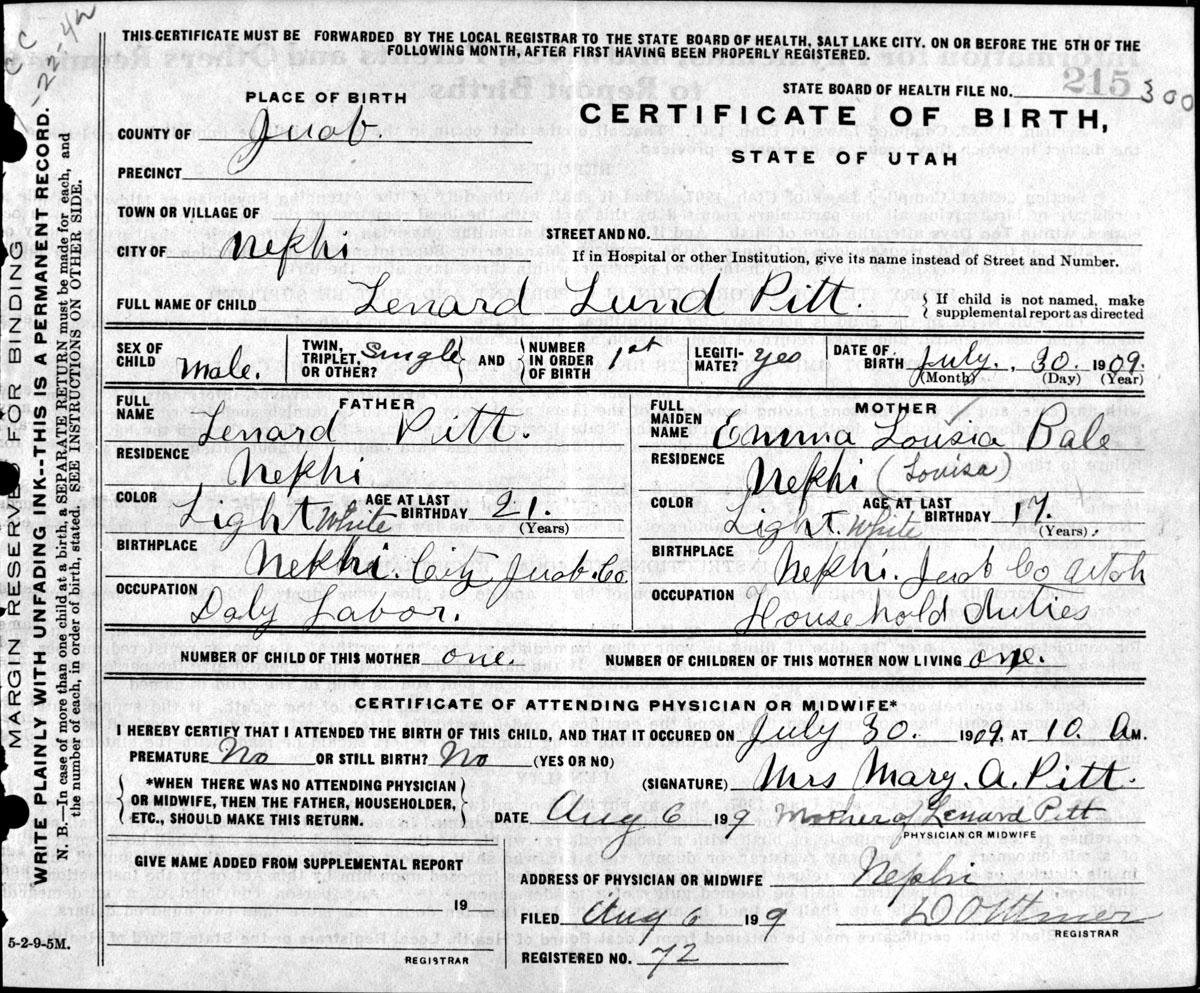 THIS CERTIFICATE MUST BE FORWARDED BY THE LOCAL REGISTRAR TO THE STATE BOARD OF HEALTH, SALT LAKE CITY. ON OR BEFORE THE 5TH OF THE
FOLLOWING MONTH, AFTER FIRST HAVING BEEN PROPERLY REGISTERED.
STATE BOARD OF HEALTH FILE NO. 215 300
PLACE OF BIRTH
CERTIFICATE OF BIRTH,
STATE OF UTAH
COUNTY OF Juab
PRECINCT
TOWN OR VILLAGE OF
CITY OF Nephi
STREET AND NO.
If in Hospital or other Institution, give its name instead of Street and Number.
FULL NAME OF CHILD Lenard Lund Pitt { If child is not named, make
supplemental report as directed
SEX OF CHILD male. TWIN, TRIPLET, OR OTHER? Single AND NUMBER IN ORDER OF BIRTH 1st LEGITIMATE? yes DATE OF BIRTH July. 30. 1909.
(Month) (Day) (Year)
FATHER
FULL NAME Lenard Pitt.
RESIDENCE Nephi
COLOR Light White AGE AT LAST BIRTHDAY 21.
(Years)
BIRTHPLACE Nephi. City Juab. Co.
OCCUPATION Daly Labor.
MOTHER
FULL MAIDEN NAME Emma Lousia Bale
RESIDENCE Nephi (Louisa)
COLOR Light. White AGE AT LAST BIRTHDAY 17.
(Years).
BIRTHPLACE Nephi. Juab Co Utah
OCCUPATION Household duties
NUMBER OF CHILD OF THIS MOTHER one. NUMBER OF CHILDREN OF THIS MOTHER NOW LIVING one.
CERTIFICATE OF ATTENDING PHYSICIAN OR MIDWIFE*
I HEREBY CERTIFY THAT I ATTENDED THE BIRTH OF THIS CHILD, AND THAT IT OCCURED ON July 30. 1909. AT 10. A M.
PREMATURE No OR STILL BIRTH? No (YES OR NO)
(SIGNATURE) Mrs Mary. A. Pitt.
*WHEN THERE WAS NO ATTENDING PHYSICIAN
OR MIDWIFE, THEN THE FATHER, HOUSEHOLDER,
ETC., SHOULD MAKE THIS RETURN.
DATE Aug 6 199 Mother of Lenard Pitt
PHYSICIAN OR MIDWIFE
GIVE NAME ADDED FROM SUPPLEMENTAL REPORT
19
REGISTRAR
ADDRESS OF PHYSICIAN OR MIDWIFE Nephi
FILED Aug 6 199
REGISTRAR
REGISTERED NO. 72
5-2-9-5M.
MARGIN RESERVED FOR BINDING
WRITE PLAINLY WITH UNFADING INK--THIS IS A PERMANENT RECORD.
N. B.—In case of more than one child at a birth, a SEPARATE RETURN must be made for each, and
the number of each, in order of birth, stated. SEE INSTRUCTIONS ON OTHER SIDE.